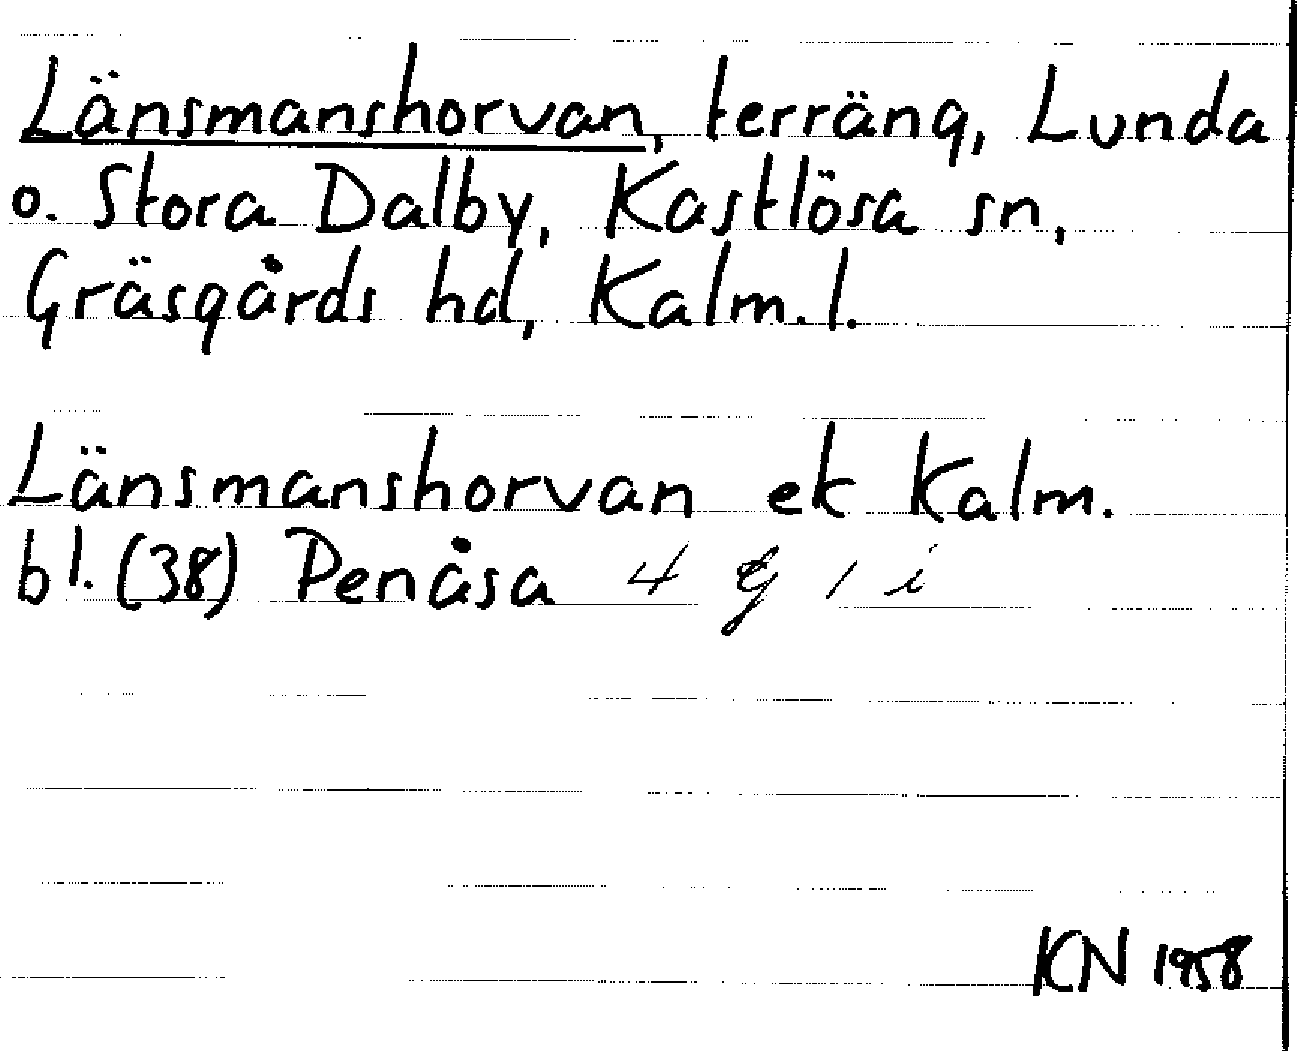 Länsmanshorvan, terräng, Lunda
o. Stora Dalby, Kastlösa sn,
Gräsgårds hd, Kalm. l.
Länsmanshorvan ek Kalm.
bl. (38) Penåsa 4 g 1 i
KN 1958